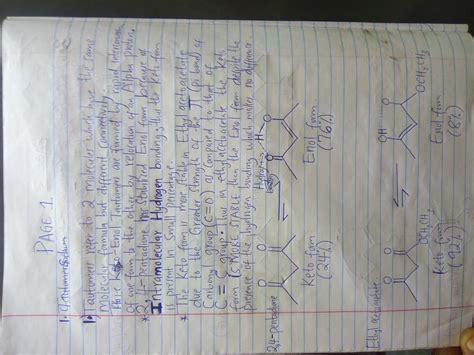 PAGE 1
1.
1) Tautomers refer to 2 molecules which have the same
Molecular formula but different connectivity
Enol Tautomer are formed by rapid interconversion
of one form to the other by relocation of an Alpha proton.
* 2,4-Pentadione stabilized Enol form because of
Intramolecular Hydrogen bonding, thus the Keto form
is present in Small Percentage.
* The Keto form is more stable in Ethyl acetoacetate
due to the Greater Strength of the π Pi bond of
Carbonyl group (C=O) as compared to that of
C=C group. Thus in ethylacetoacetate the Keto
form is MORE STABLE than the Enol form despite the
Presence of the hydrogen bonding which makes no difference.
2,4-Pentadione
Hydrogen
bonding
O O
O H O
Keto form
(24%)
Enol form
(76%)
Ethyl acetoacetate
O O
OCH2CH3
OH O
OCH2CH3
Keto form
(92%)
Enol form
(8%)